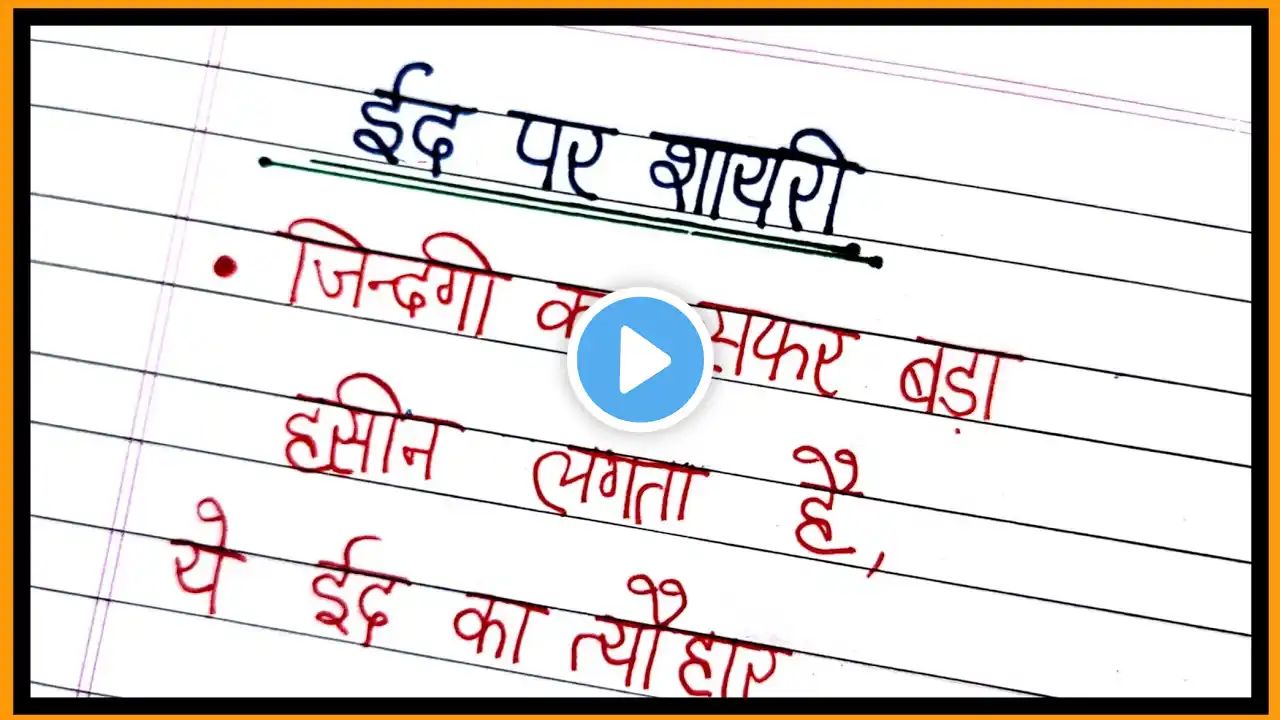 ईद पर शायरी
• जिन्दगी का सफर बड़ा
हसीन लगता है,
ये ईद का त्यौहार